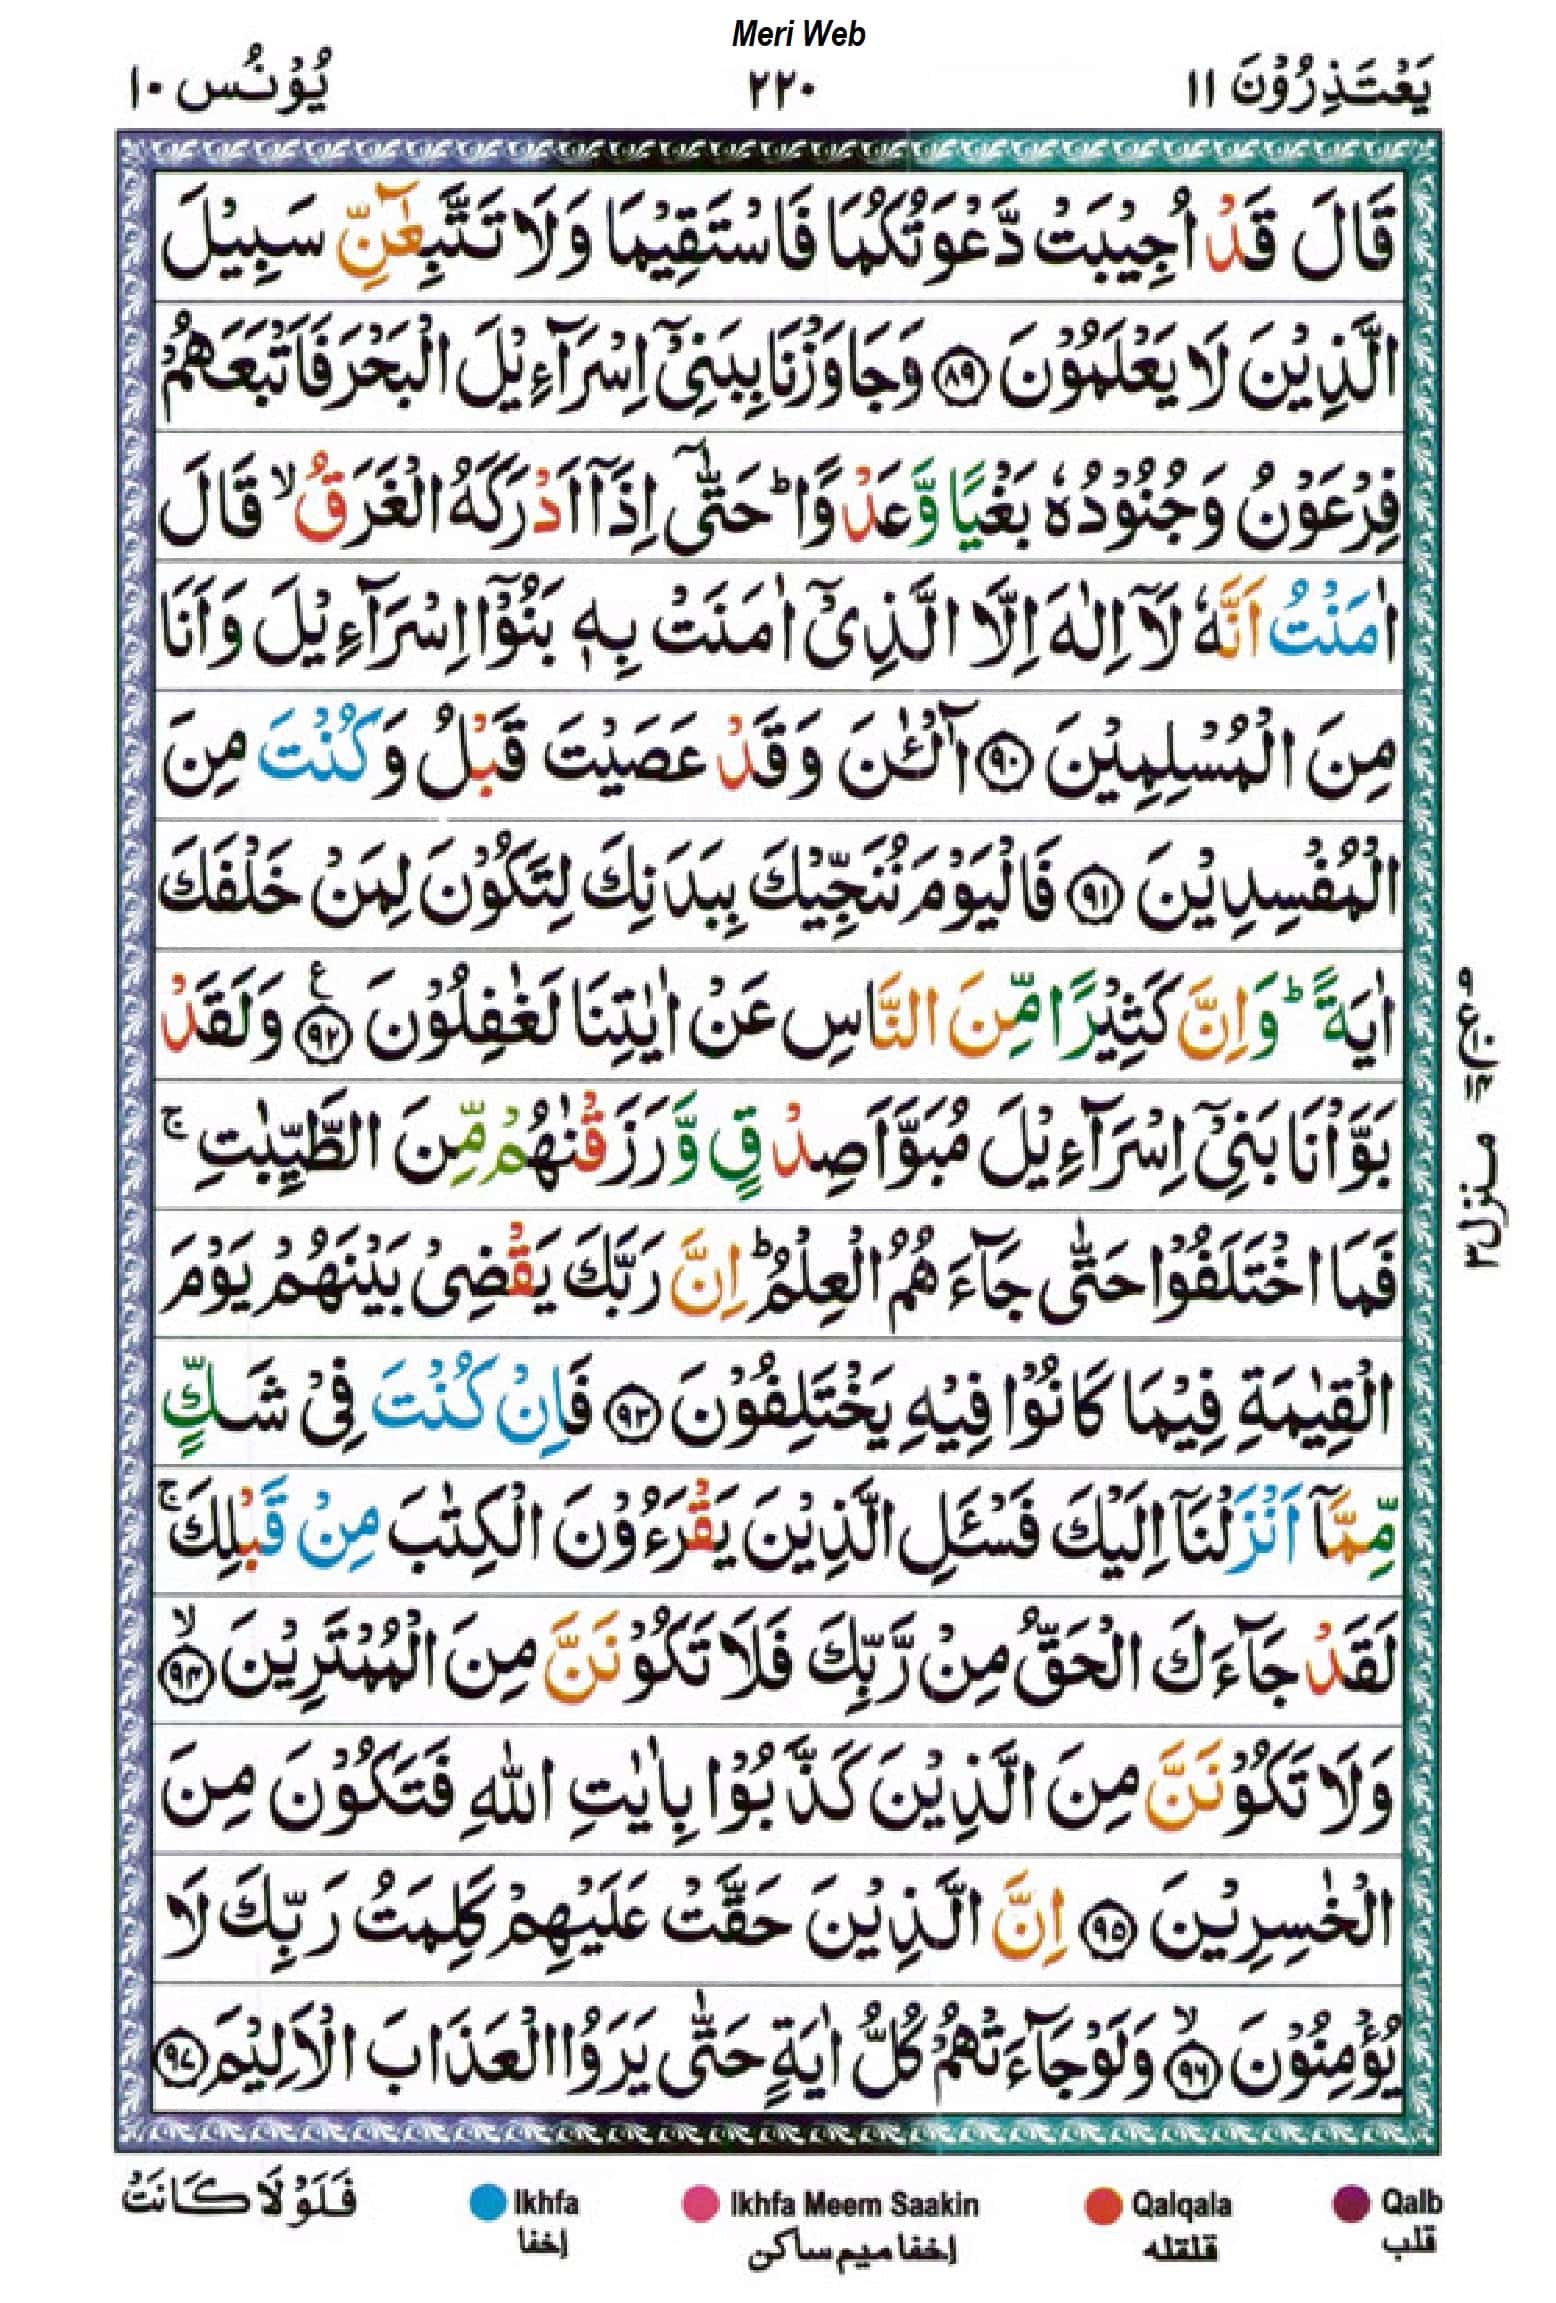 Meri Web
یَعْتَذِرُوْنَ ۱۱
۲۲۰
یُوْنُس ۱۰
قَالَ قَدْ اُجِیْبَتْ دَّعْوَتُكُمَا فَاسْتَقِیْمَا وَلَا تَتَّبِعٰٓنِّ سَبِیْلَ
الَّذِیْنَ لَا یَعْلَمُوْنَ ﴿۸۹﴾ وَجَاوَزْنَا بِبَنِیْۤ اِسْرَآءِیْلَ الْبَحْرَ فَاَتْبَعَهُمْ
فِرْعَوْنُ وَجُنُوْدُهٗ بَغْیًا وَّعَدْوًا ؕ حَتّٰۤی اِذَاۤ اَدْرَكَهُ الْغَرَقُ ۙ قَالَ
اٰمَنْتُ اَنَّهٗ لَاۤ اِلٰهَ اِلَّا الَّذِیْۤ اٰمَنَتْ بِهٖ بَنُوْۤا اِسْرَآءِیْلَ وَاَنَا
مِنَ الْمُسْلِمِیْنَ ﴿۹۰﴾ آٰلْـٰٔنَ وَقَدْ عَصَیْتَ قَبْلُ وَكُنْتَ مِنَ
الْمُفْسِدِیْنَ ﴿۹۱﴾ فَالْیَوْمَ نُنَجِّیْكَ بِبَدَنِكَ لِتَكُوْنَ لِمَنْ خَلْفَكَ
اٰیَةً ؕ وَاِنَّ كَثِیْرًا مِّنَ النَّاسِ عَنْ اٰیٰتِنَا لَغٰفِلُوْنَ ﴿۹۲﴾ ع وَلَقَدْ
بَوَّاْنَا بَنِیْۤ اِسْرَآءِیْلَ مُبَوَّاَ صِدْقٍ وَّرَزَقْنٰهُمْ مِّنَ الطَّیِّبٰتِ ۚ
فَمَا اخْتَلَفُوْا حَتّٰی جَآءَهُمُ الْعِلْمُ ؕ اِنَّ رَبَّكَ یَقْضِیْ بَیْنَهُمْ یَوْمَ
الْقِیٰمَةِ فِیْمَا كَانُوْا فِیْهِ یَخْتَلِفُوْنَ ﴿۹۳﴾ فَاِنْ كُنْتَ فِیْ شَكٍّ
مِّمَّاۤ اَنْزَلْنَاۤ اِلَیْكَ فَسْـَٔلِ الَّذِیْنَ یَقْرَءُوْنَ الْكِتٰبَ مِنْ قَبْلِكَ ۚ
لَقَدْ جَآءَكَ الْحَقُّ مِنْ رَّبِّكَ فَلَا تَكُوْنَنَّ مِنَ الْمُمْتَرِیْنَ ۙ ﴿۹۴﴾
وَلَا تَكُوْنَنَّ مِنَ الَّذِیْنَ كَذَّبُوْا بِاٰیٰتِ اللّٰهِ فَتَكُوْنَ مِنَ
الْخٰسِرِیْنَ ﴿۹۵﴾ اِنَّ الَّذِیْنَ حَقَّتْ عَلَیْهِمْ كَلِمَتُ رَبِّكَ لَا
یُؤْمِنُوْنَ ۙ ﴿۹۶﴾ وَلَوْ جَآءَتْهُمْ كُلُّ اٰیَةٍ حَتّٰی یَرَوُا الْعَذَابَ الْاَلِیْمَ ﴿۹۷﴾
منزل۳
فَلَوْلَا كَانَتْ
Ikhfa
إخفا
Ikhfa Meem Saakin
إخفا میم ساکن
Qalqala
قلقله
Qalb
قلب